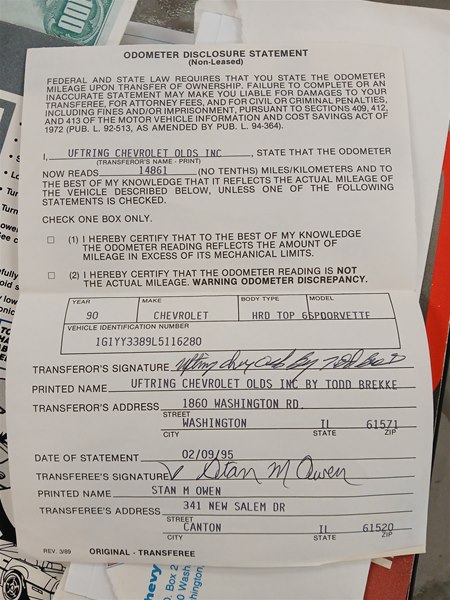 100
ODOMETER DISCLOSURE STATEMENT
(Non-Leased)
FEDERAL AND STATE LAW REQUIRES THAT YOU STATE THE ODOMETER
MILEAGE UPON TRANSFER OF OWNERSHIP. FAILURE TO COMPLETE OR AN
INACCURATE STATEMENT MAY MAKE YOU LIABLE FOR DAMAGES TO YOUR
TRANSFEREE, FOR ATTORNEY FEES, AND FOR CIVIL OR CRIMINAL PENALTIES,
INCLUDING FINES AND/OR IMPRISONMENT, PURSUANT TO SECTIONS 409, 412,
AND 413 OF THE MOTOR VEHICLE INFORMATION AND COST SAVINGS ACT OF
1972 (PUB. L. 92-513, AS AMENDED BY PUB. L. 94-364).
I, UFTRING CHEVROLET OLDS INC, STATE THAT THE ODOMETER
(TRANSFEROR'S NAME - PRINT)
NOW READS 14861 (NO TENTHS) MILES/KILOMETERS AND TO
THE BEST OF MY KNOWLEDGE THAT IT REFLECTS THE ACTUAL MILEAGE OF
THE VEHICLE DESCRIBED BELOW, UNLESS ONE OF THE FOLLOWING
STATEMENTS IS CHECKED.
CHECK ONE BOX ONLY.
(1) I HEREBY CERTIFY THAT TO THE BEST OF MY KNOWLEDGE
THE ODOMETER READING REFLECTS THE AMOUNT OF
MILEAGE IN EXCESS OF ITS MECHANICAL LIMITS.
(2) I HEREBY CERTIFY THAT THE ODOMETER READING IS NOT
THE ACTUAL MILEAGE. WARNING ODOMETER DISCREPANCY.
YEAR MAKE BODY TYPE MODEL
90 CHEVROLET HRD TOP 6SPDORVETTE
VEHICLE IDENTIFICATION NUMBER
1G1YY3389L5116280
TRANSFEROR'S SIGNATURE Uftring Chev Olds By Todd Brekke
PRINTED NAME UFTRING CHEVROLET OLDS INC BY TODD BREKKE
TRANSFEROR'S ADDRESS 1860 WASHINGTON RD.
STREET
WASHINGTON IL 61571
CITY STATE ZIP
DATE OF STATEMENT 02/09/95
TRANSFEREE'S SIGNATURE Stan M Owen
PRINTED NAME STAN M OWEN
TRANSFEREE'S ADDRESS 341 NEW SALEM DR
STREET
CANTON IL 61520
CITY STATE ZIP
REV. 3/89 ORIGINAL - TRANSFEREE